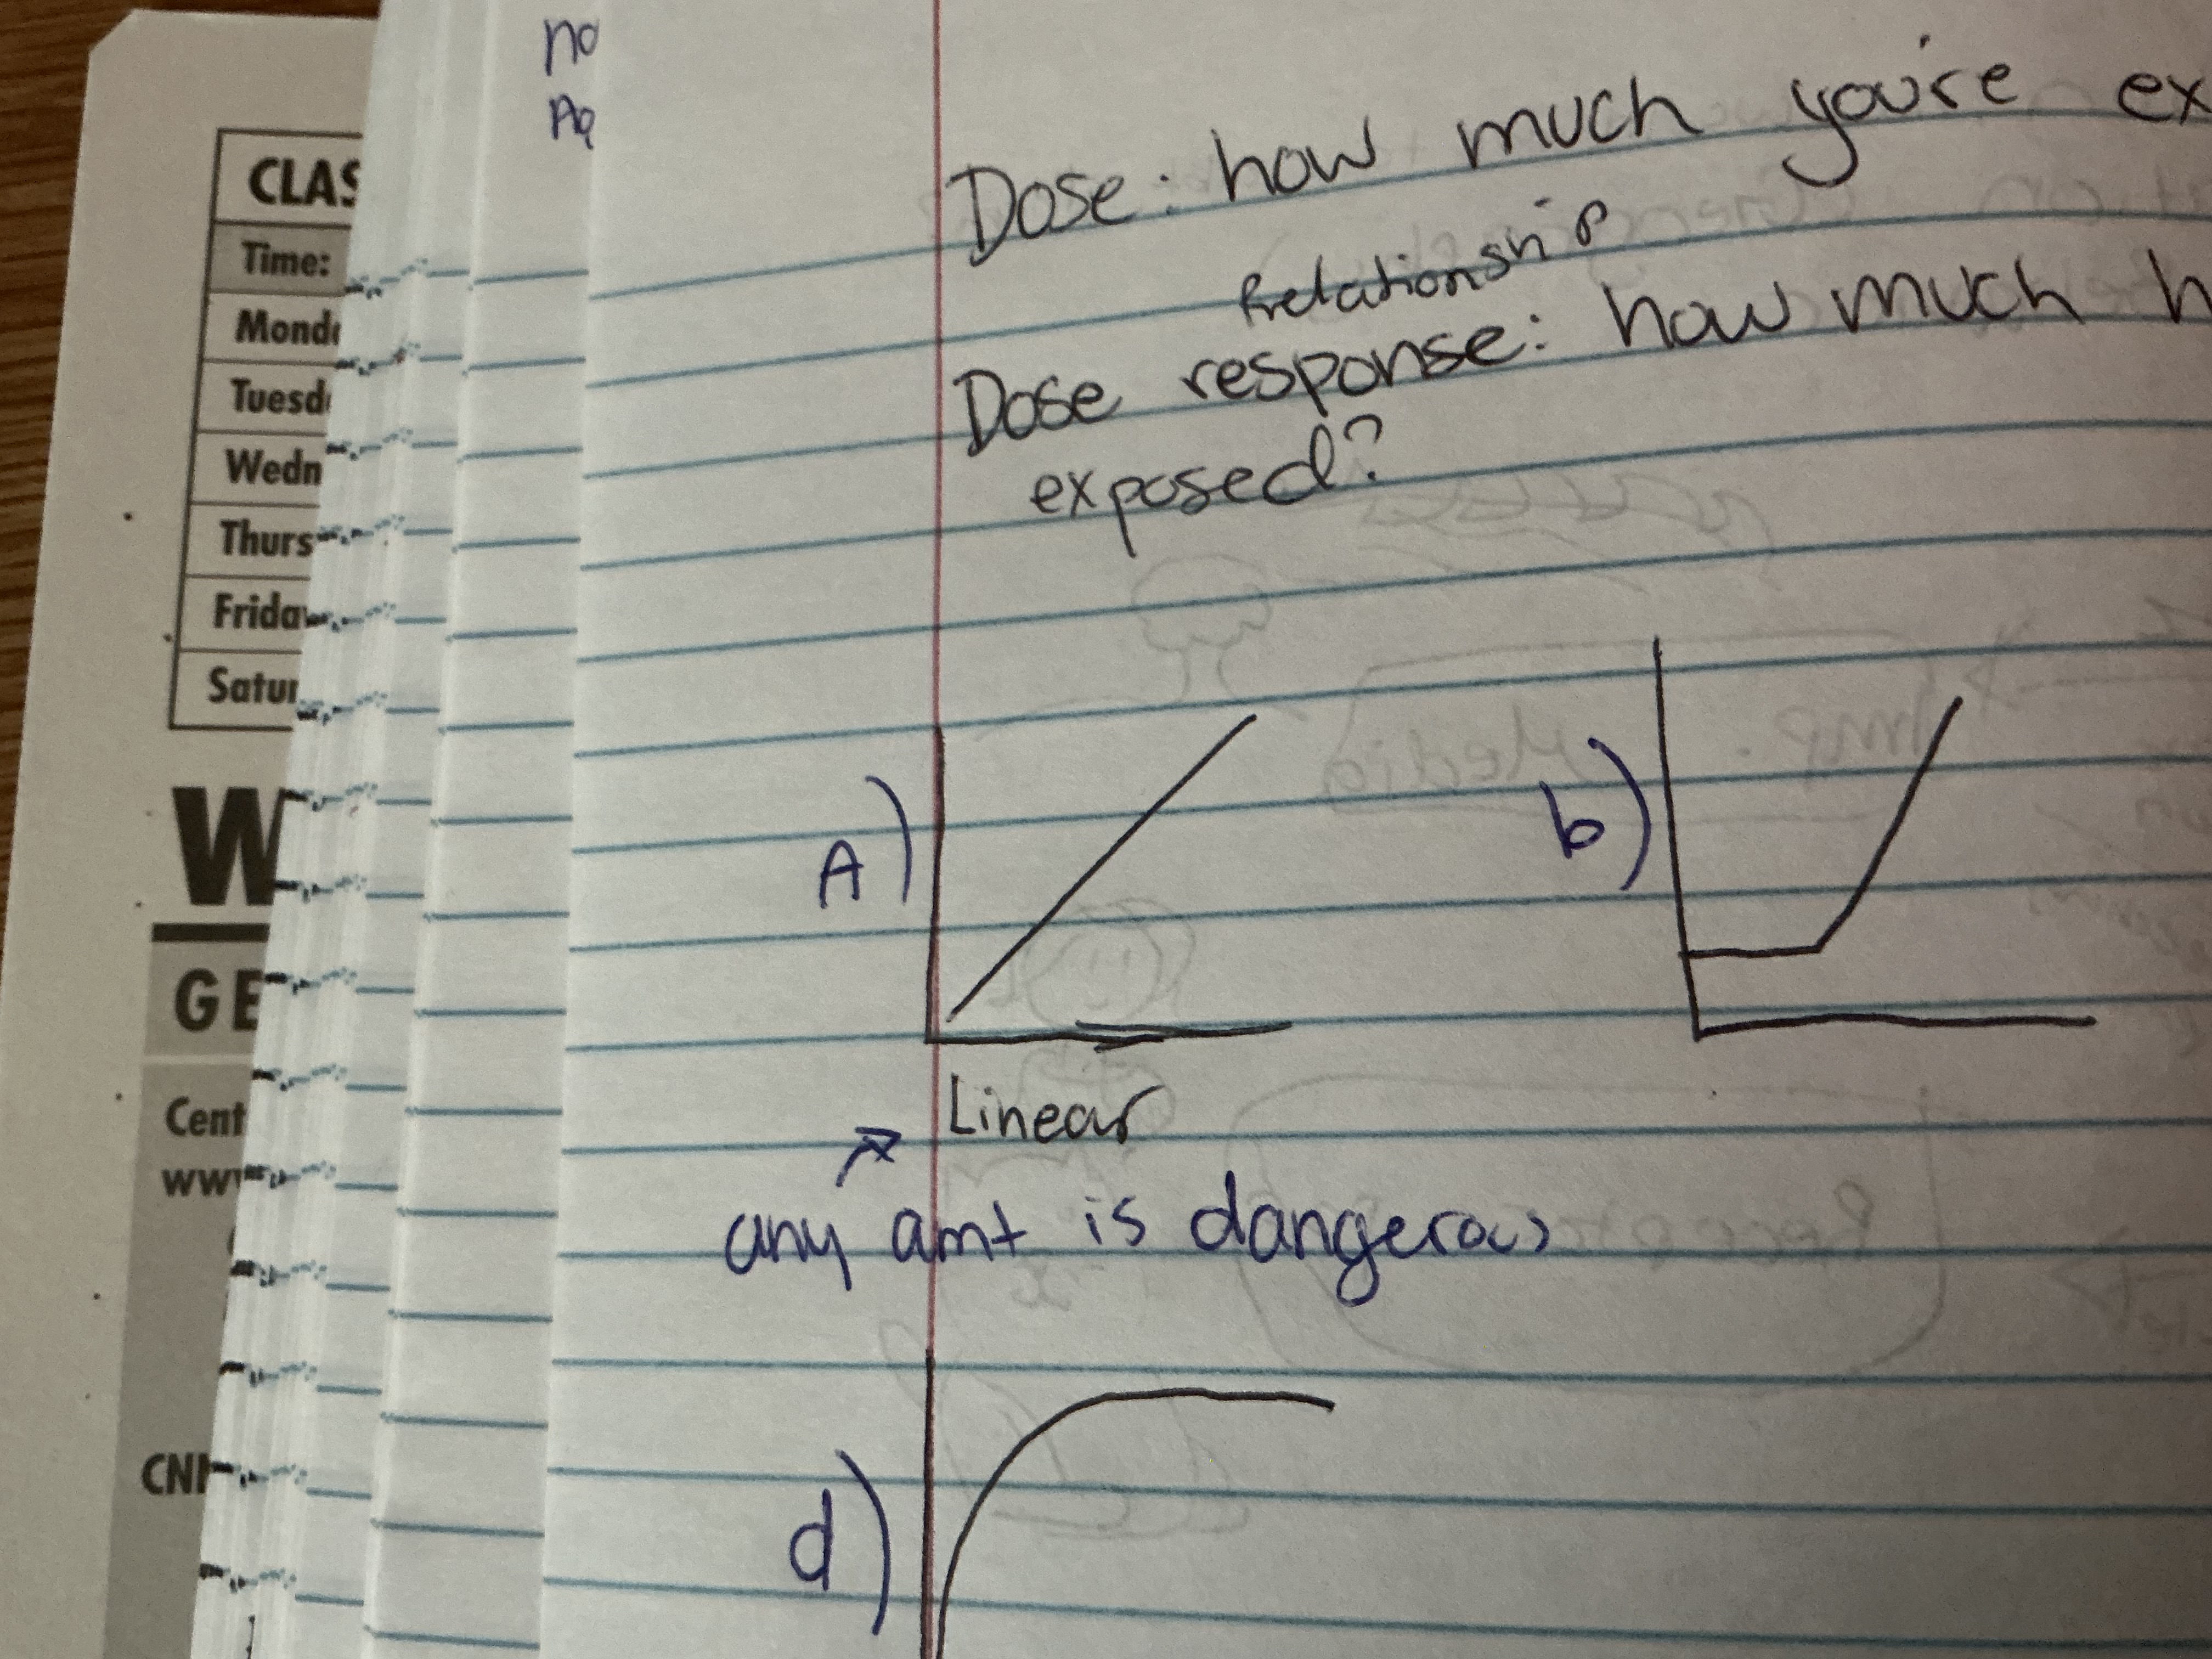 no
CLAS
Time:
Mond
Tuesd
Wedn
Thurs
Friday
Satur
W
GE
Cent
www
CNI
Dose: how much you're ex
Relationship
Dose response: how much h
exposed?
A)
b)
Linear
any amt is dangerous
d)